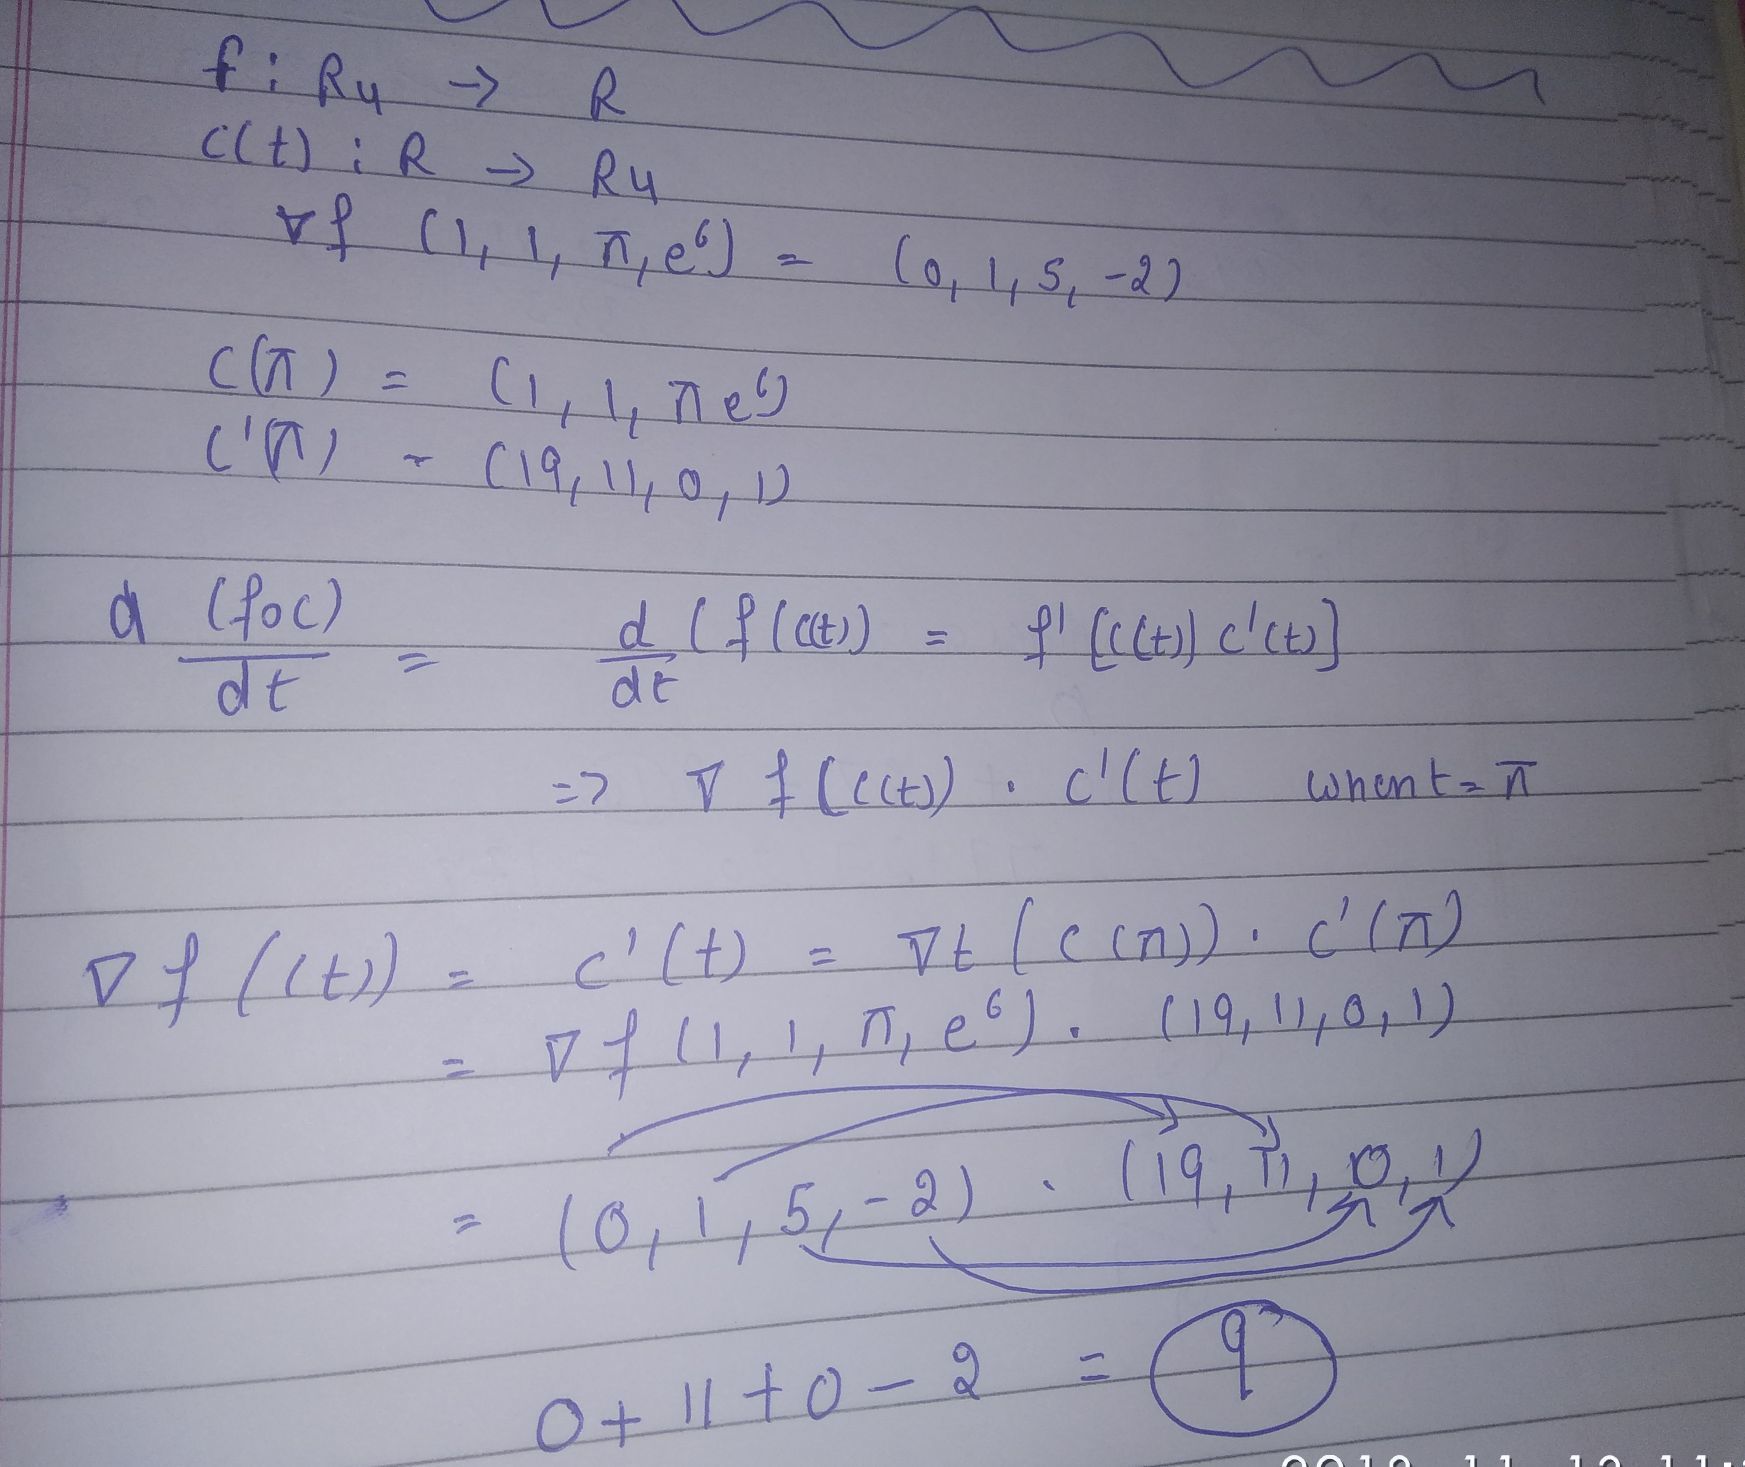 f : R4 → R
C(t) : R → R4
∇f (1, 1, π, e⁶) = (0, 1, 5, -2)
C(π) = (1, 1, π e⁶)
C'(π) = (19, 11, 0, 1)
d (foc) / dt = d/dt (f(c(t)) = f' [c(t)] c'(t)]
=> ∇ f(c(t)) . c'(t) when t = π
∇ f (c(t)) = c'(t) = ∇t (c(π)) . c'(π)
= ∇ f (1, 1, π, e⁶) . (19, 11, 0, 1)
= (0, 1, 5, -2) . (19, 11, 0, 1)
0 + 11 + 0 - 2 = 9